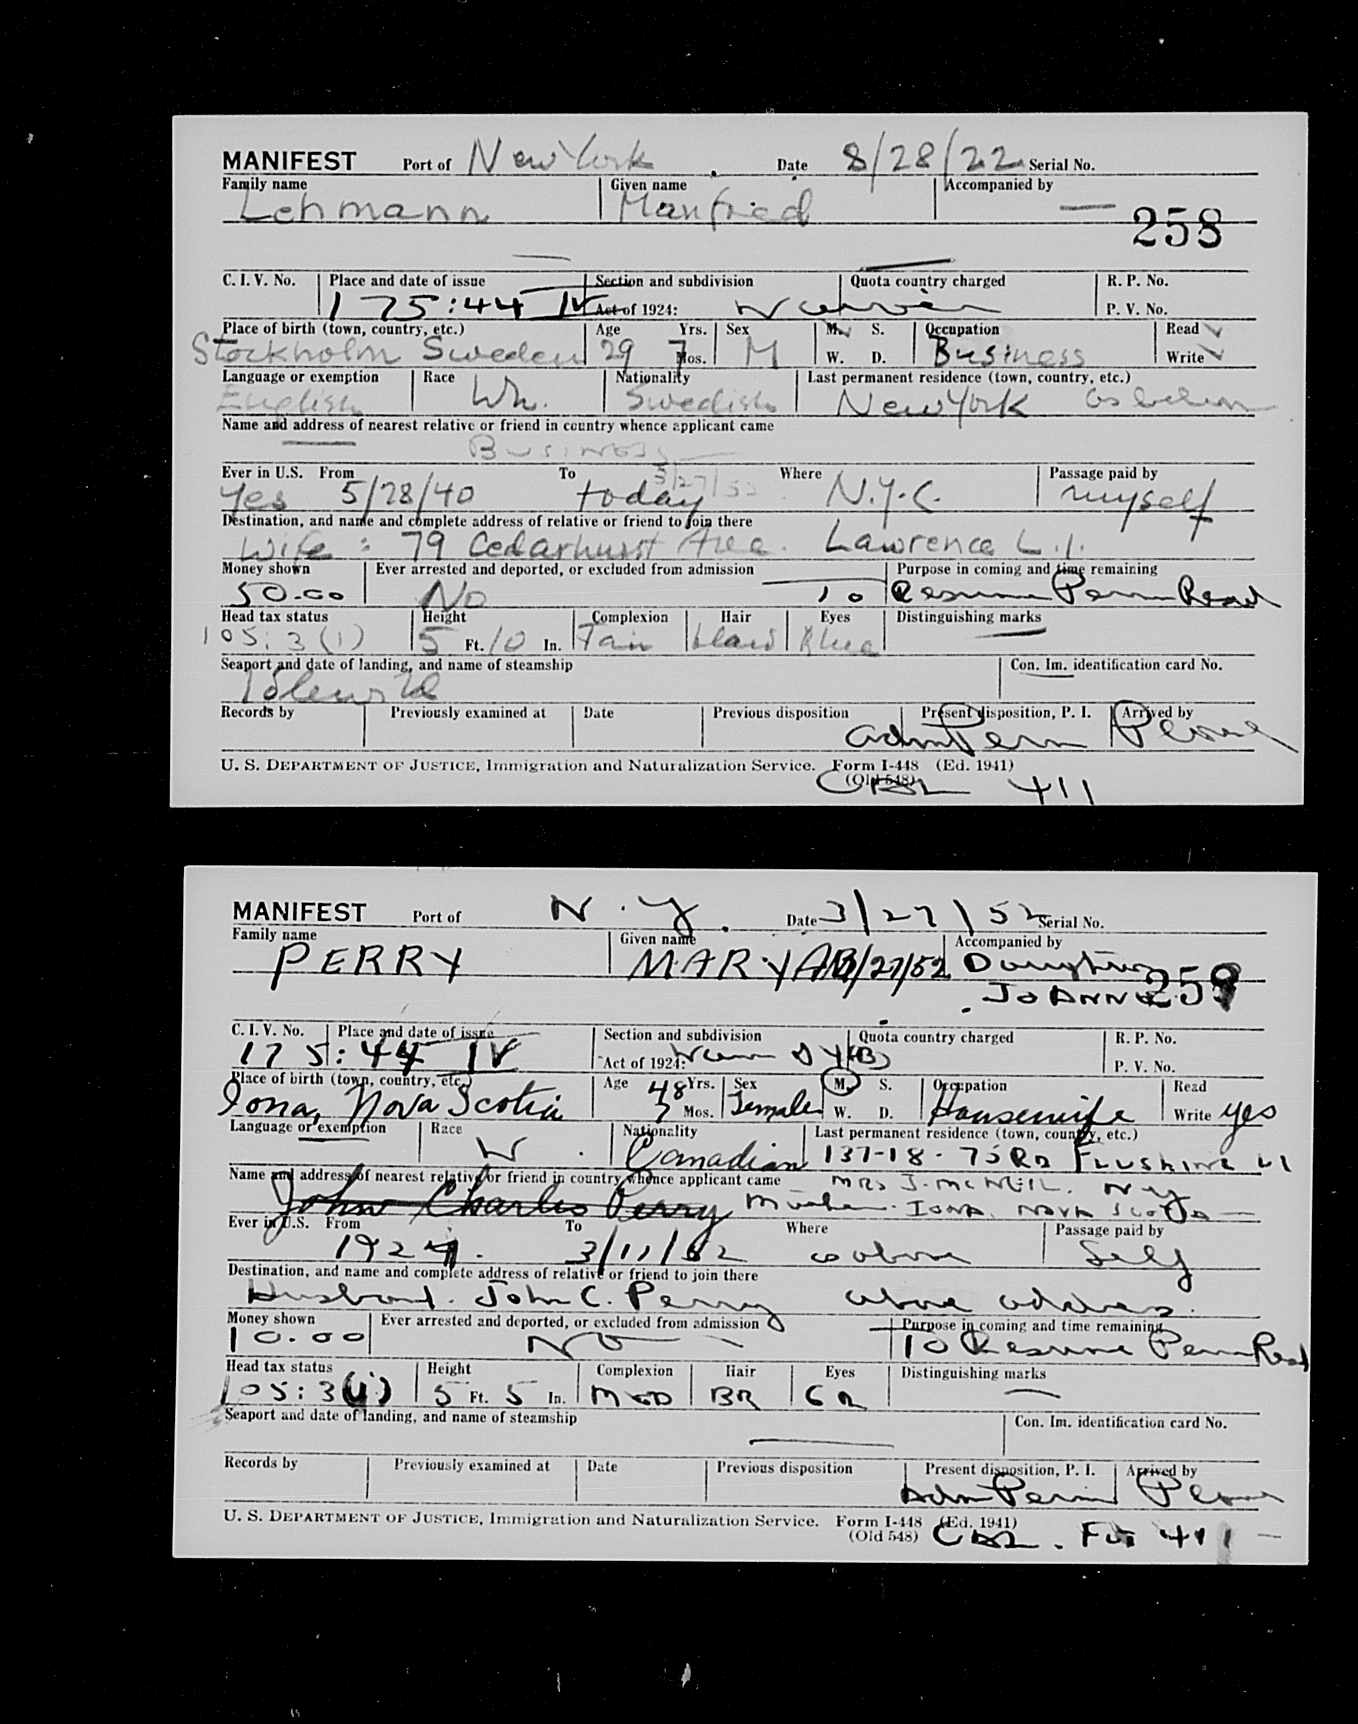 MANIFEST Port of New York Date 8/28/22 Serial No.
Family name Given name Accompanied by
Lehmann Manfried —
258
C. I. V. No. Place and date of issue Section and subdivision Quota country charged R. P. No.
175:44 IV Act of 1924: P. V. No.
Place of birth (town, country, etc.) Age Yrs. Sex M. S. Occupation Read
Stockholm Sweden 29 7 Mos. M W. D. Business Write
Language or exemption Race Nationality Last permanent residence (town, country, etc.)
English Wh. Swedish New York
Name and address of nearest relative or friend in country whence applicant came
Business
Ever in U.S. From To 3/27/52 Where Passage paid by
Yes 5/28/40 today N.Y.C. myself
Destination, and name and complete address of relative or friend to join there
Wife: 79 Cedarhurst Ave. Lawrence L.I.
Money shown Ever arrested and deported, or excluded from admission Purpose in coming and time remaining
50.00 No To Resume Perm Resd
Head tax status Height Complexion Hair Eyes Distinguishing marks
105:3(1) 5 Ft. 10 In. Blue
Seaport and date of landing, and name of steamship Con. Im. identification card No.
Idlewild
Records by Previously examined at Date Previous disposition Present disposition, P. I. Arrived by
adm Perm
U. S. DEPARTMENT OF JUSTICE, Immigration and Naturalization Service. Form I-448 (Ed. 1941)
(Old 548)
411
MANIFEST Port of N.Y. Date 3/27/52 Serial No.
Family name Given name Accompanied by
PERRY MARY 3/27/52 Daughter
JOANNE 259
C. I. V. No. Place and date of issue Section and subdivision Quota country charged R. P. No.
175:44 IV Act of 1924: P. V. No.
Place of birth (town, country, etc.) Age 48 Yrs. Sex M. S. Occupation Read
Iona, Nova Scotia 7 Mos. Female W. D. Housewife Write yes
Language or exemption Race Nationality Last permanent residence (town, country, etc.)
W Canadian 137-18-75 RD FLUSHING LI
Name and address of nearest relative or friend in country whence applicant came MRS J. McNEIL. NY
John Charles Perry Mother. IONA. NOVA SCOTIA
Ever in U.S. From To Where Passage paid by
1924. 3/11/52 as above Self
Destination, and name and complete address of relative or friend to join there
Husband. John C. Perry above address.
Money shown Ever arrested and deported, or excluded from admission Purpose in coming and time remaining
10.00 NO To Resume Perm Resd
Head tax status Height Complexion Hair Eyes Distinguishing marks
105:3(1) 5 Ft. 5 In. MED BR GR —
Seaport and date of landing, and name of steamship Con. Im. identification card No.
Records by Previously examined at Date Previous disposition Present disposition, P. I. Arrived by
Adm Perm
U. S. DEPARTMENT OF JUSTICE, Immigration and Naturalization Service. Form I-448 (Ed. 1941)
(Old 548) 411